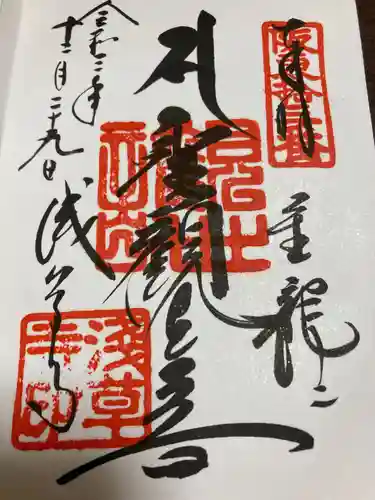 奉拝
坂東拾三番
金龍山
聖観世音
令和二年
十二月二十九日
浅草寺
浅草寺印